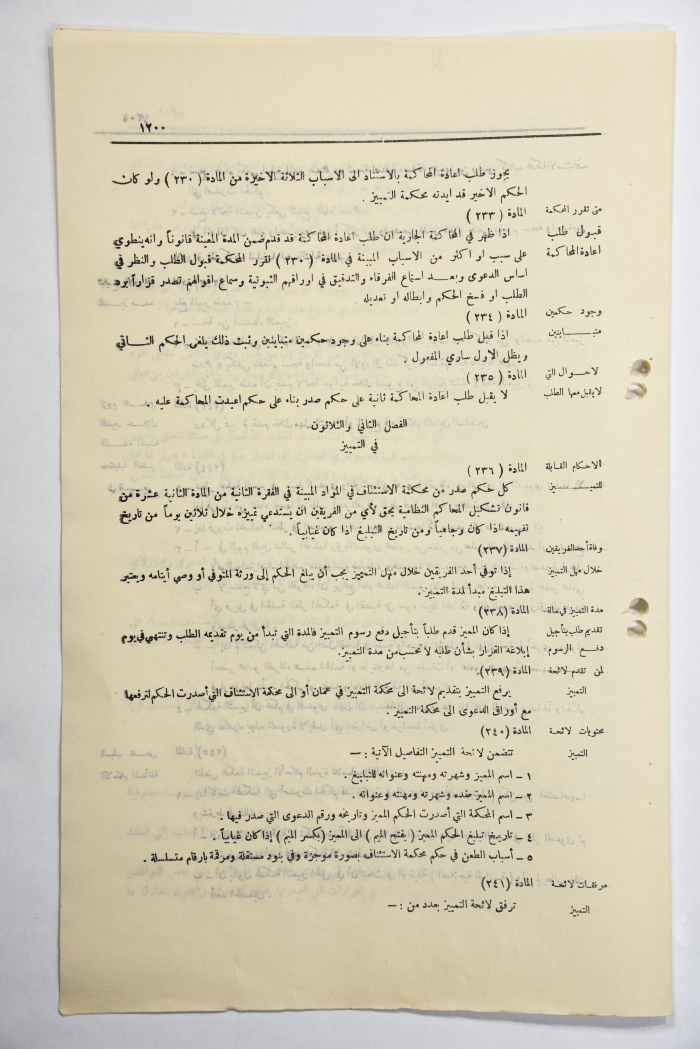 ١٢٠٠
يجوز طلب اعادة المحاكمة بالاستناد الى الاسباب الثلاثة الاخيرة من المادة ( ٢٣٠ ) ولو كان
الحكم الاخير قد ايدته محكمة التمييز .
متى تقرر المحكمة المادة ( ٢٣٣ )
قبول طلب اذا ظهر في المحاكمة الجارية ان طلب اعادة المحاكمة قد قدم ضمن المدة المعينة قانوناً وانه ينطوي
اعادة المحاكمة على سبب او اكثر من الاسباب المبينة في المادة ( ٢٣٠ ) تقرر المحكمة قبول الطلب والنظر في
اساس الدعوى وبعد استماع الفرقاء والتدقيق في اوراقهم الثبوتية وسماع اقوالهم تصدر قراراً برد
الطلب او فسخ الحكم وابطاله او تعديله
وجود حكمين المادة ( ٢٣٤ )
متباينين اذا قبل طلب اعادة المحاكمة بناء على وجود حكمين متباينين وثبت ذلك يلغى الحكم الثاني
ويظل الاول ساري المفعول .
لاحوال التي المادة ( ٢٣٥ )
لا يقبل معها الطلب لا يقبل طلب اعادة المحاكمة ثانية على حكم صدر بناء على حكم اعيدت المحاكمة عليه .
الفصل الثاني والثلاثون
في التمييز
الاحكام القابلة المادة ( ٢٣٦ )
للتمييز كل حكم صدر من محكمة الاستئناف في المواد المبينة في الفقرة الثانية من المادة الثانية عشرة من
قانون تشكيل المحاكم النظامية يحق لأي من الفريقين ان يستدعي تمييزه خلال ثلاثين يوماً من تاريخ
تفهيمه اذا كان وجاهياً ومن تاريخ التبليغ اذا كان غيابياً .
وفاة أحد الفريقين المادة (٢٣٧)
خلال مهل التمييز إذا توفي أحد الفريقين خلال مهل التمييز يجب أن يبلغ الحكم إلى ورثة المتوفي أو وصي أيتامه ويعتبر
هذا التبليغ مبدأ لمدة التمييز.
مدة التمييز في حالة المادة (٢٣٨)
تقديم طلب بتأجيل إذا كان المميز قدم طلباً بتأجيل دفع رسوم التمييز فالمدة التي تبدأ من يوم تقديمه الطلب وتنتهي في يوم
دفع الرسوم إبلاغه القرار بشأن طلبه لا تحسب من مدة التمييز.
لمن تقدم لائحة المادة (٢٣٩)
التمييز يرفع التمييز بتقديم لائحة الى محكمة التمييز في عمان أو الى محكمة الاستئناف التي أصدرت الحكم لترفعها
مع أوراق الدعوى الى محكمة التمييز .
محتويات لائحة المادة (٢٤٠)
التمييز تتضمن لائحة التمييز التفاصيل الآتية : —
١ – اسم المميز وشهرته ومهنته وعنوانه للتبليغ .
٢ – اسم المميز ضده وشهرته ومهنته وعنوانه .
٣ – اسم المحكمة التي أصدرت الحكم المميز وتاريخه ورقم الدعوى التي صدر فيها .
٤ – تاريخ تبليغ الحكم المميز ( بفتح الميم ) الى المميز (بكسر الميم ) إذا كان غيابياً .
٥ – أسباب الطعن في حكم محكمة الاستئناف بصورة موجزة وفي بنود مستقلة ومرقمة بارقام متسلسلة .
مرفقات لائحة المادة (٢٤١)
التمييز ترفق لائحة التمييز بعدد من : —